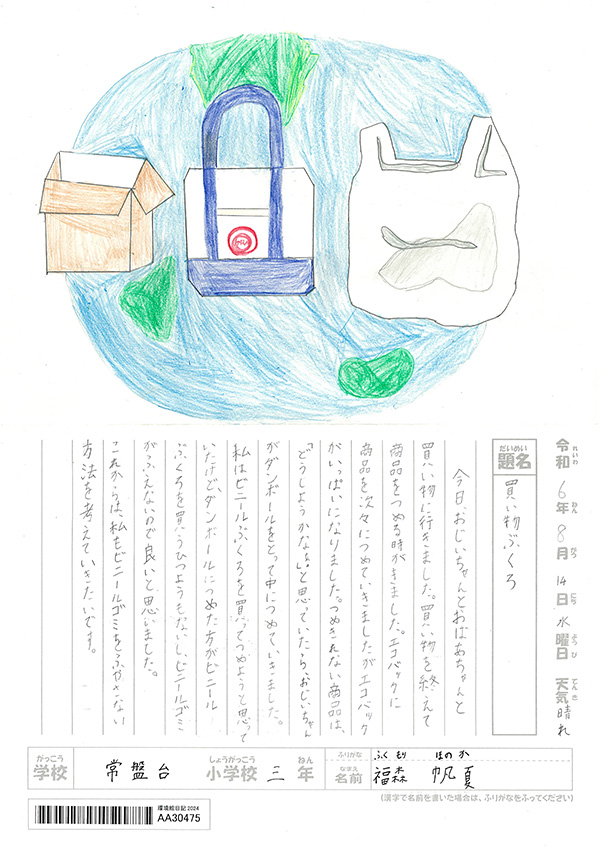 令和6年8月14日水曜日 天気晴れ
れいわ ねん がつ にち ようび てんき
だいめい
題名
買い物ぶくろ
今日、おじいちゃんとおばあちゃんと
買い物に行きました。買い物を終えて
商品をつめる時がきました。エコバックに
商品を次々につめていきましたがエコバック
がいっぱいになりました。つめきれない商品は、
「どうしようかなぁ。」と思っていたらおじいちゃん
がダンボールをとって中につめていきました。
私はビニールぶくろを買ってつめようと思って
いたけどダンボールにつめた方がビニール
ぶくろを買うひつようもないし、ビニールゴミ
がふえないので良いと思いました。
これからは、私もビニールゴミをふやさない
方法を考えていきたいです。
がっこう しょうがっこう ねん ふりがな ふくもり ほのか
学校 常盤台 小学校 三年 なまえ 名前 福森 帆夏
(漢字で名前を書いた場合は、ふりがなをふってください)
環境絵日記 2024
AA30475